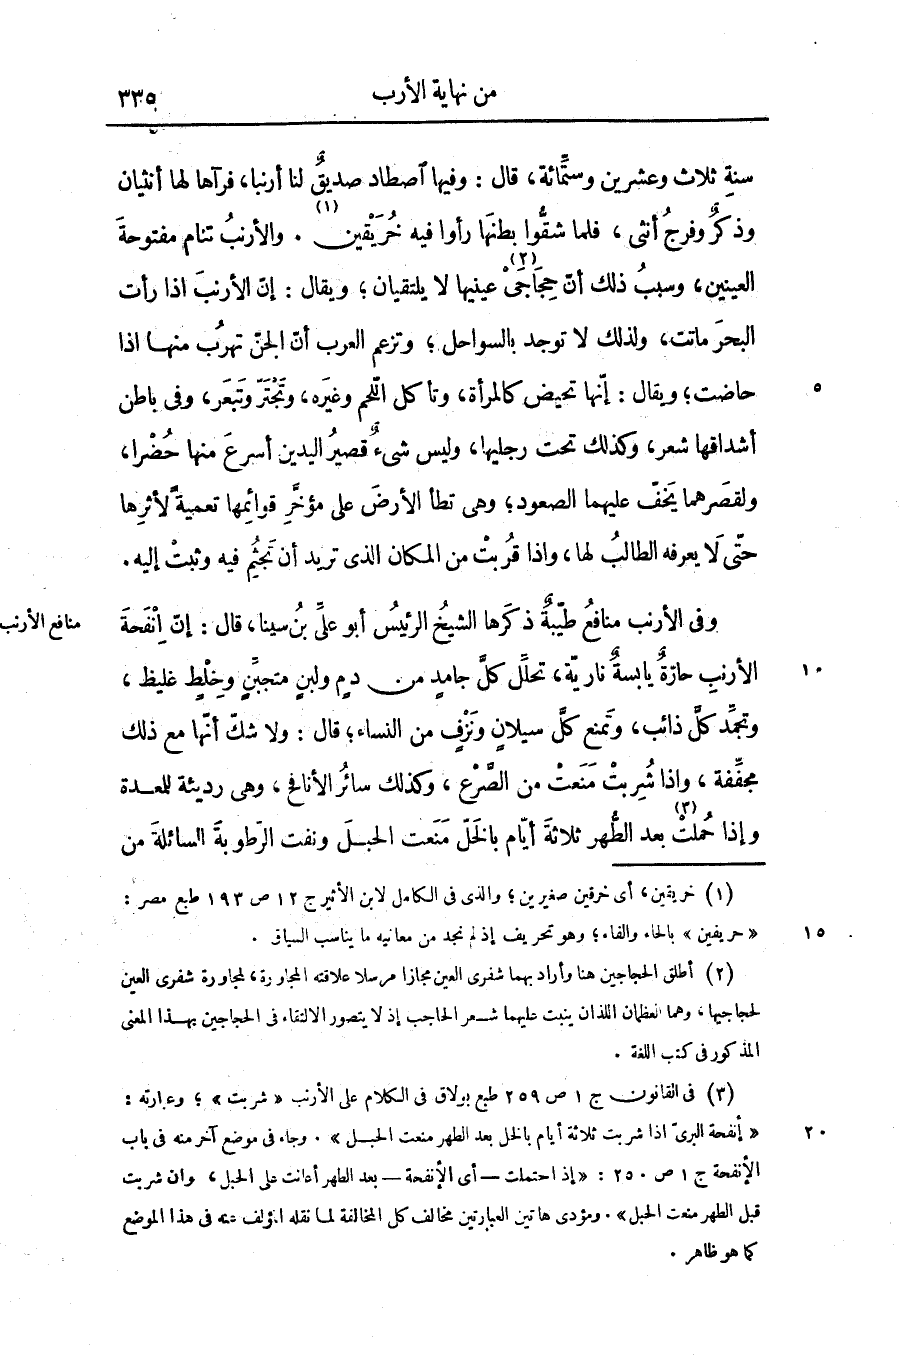 من نهاية الأرب ٣٣٥
سنةِ ثلاث وعشرين وستّمائة، قال : وفيها ٱصطاد صديقٌ لنا أرنبا، فرآها لها أنثيان
وذكرٌ وفرجُ أنثى، فلما شقُّوا بطنَها رأوا فيه خُرَيْقين(١) . والأرنبُ تنام مفتوحةَ
العينين، وسببُ ذلك أنّ حِجَاجَىْ(٢) عينيها لا يلتقيان؛ ويقال : إنّ الأرنبَ اذا رأت
البحرَ ماتت، ولذلك لا توجد بالسواحل؛ وتزعم العرب أنّ الجنّ تهرُب منهـا اذا
حاضت؛ ويقال : إنّها تحيض كالمرأة، وتأكل اللّحم وغيرَه، وتَجْتَرّ وتَبعَر، وفى باطن ٥
أشداقها شعر، وكذلك تحت رجليها، وليس شىءٌ قصيرُ اليدين أسرعَ منها حُضْرا،
ولقصَرهما يَخفّ عليهما الصعود؛ وهى تطأ الأرضَ على مؤخَّرِ قوائمها تعميةً لأثرها
حتّى لَا يعرفه الطالبُ لها، واذا قرُبتْ من المكان الذى تريد أن تَجثِم فيه وثبتْ إليه.
وفى الأرنب منافعُ طبّيةٌ ذكَرها الشيخُ الرئيسُ أبو علىِّ بنُ سينا، قال : إنّ إنْفَحةَ
منافع الأرنب
الأرنبِ حارّةٌ يابسةٌ ناريّة، تحلِّل كلَّ جامدٍ من دمٍ ولبنٍ متجبِّنٍ وخِلْطٍ غليظ، ١٠
وتجمِّد كلَّ ذائب، وتَمنع كلَّ سيلانٍ ونَزْفٍ من النساء؛ قال : ولا شكّ أنّها مع ذلك
مجفِّفة، واذا شُرِبتْ مَنَعتْ من الصَّرْع، وكذلك سائرُ الأنافح، وهى رديئة للمعـدة
واذا حُملتْ(٣) بعد الطُّهر ثلاثةَ أيّام بالخَلّ مَنَعت الحبـلَ ونفت الرّطوبةَ السائلةَ من
(١) خريقين، أى خرقين صغيرين؛ والذى فى الكامل لابن الأثير ج ١٢ ص ١٩٣ طبع مصر :
« حريفين » بالحاء والفاء؛ وهو تحريف إذ لم نجد من معانيه ما يناسب السياق . ١٥
(٢) أطلق الحجاجين هنا وأراد بهما شفرى العين مجازا مرسلا علاقته المجاورة، لمجاورة شفرى العين
لحجاجيها، وهما العظمان اللذان ينبت عليهما شـعر الحاجب إذ لا يتصور الالتقاء فى الحجاجين بهـذا المعنى
المذكور فى كتب اللغة .
(٣) فى القانون ج ١ ص ٢٥٩ طبع بولاق فى الكلام على الأرنب « شربت » ؛ وعبارته :
« إنفحة البرىّ اذا شربت ثلاثة أيام بالخل بعد الطهر منعت الحبـل » . وجاء فى موضع آخر منه فى باب ٢٠
الإنفحة ج ١ ص ٢٥٠ : « إذ احتملت — أى الإنفحة — بعد الطهر أعانت على الحبل، وان شربت
قبل الطهر منعت الحبل» . ومؤدى هاتين العبارتين مخالف كل المخالفة لما نقله المؤلف عنه فى هذا الموضع
كما هو ظاهر .